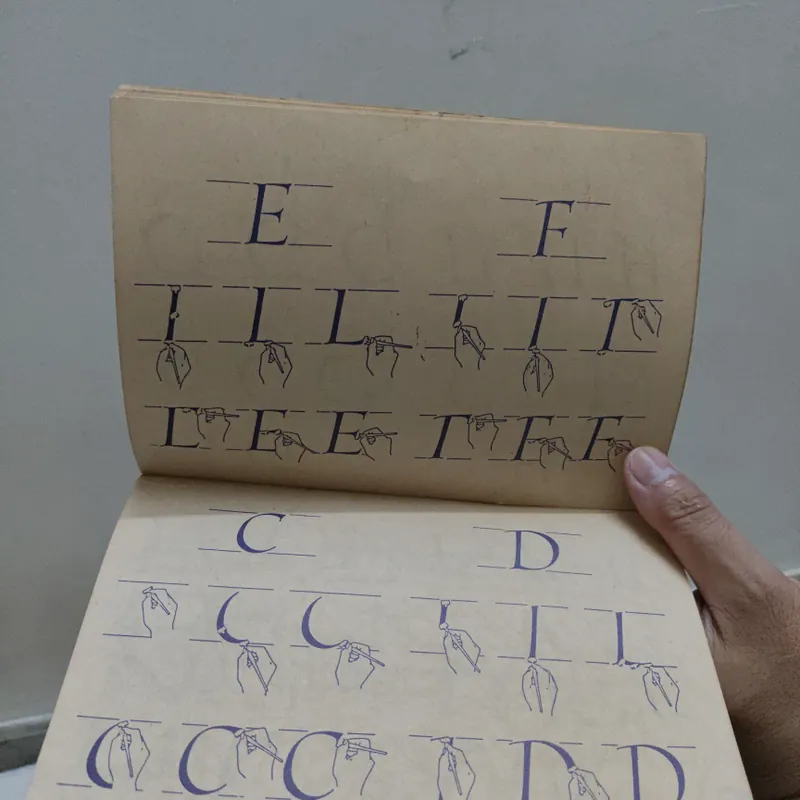 E F
I I L I I Γ
E E Γ F F
C D
C C I I L
C C C I D D